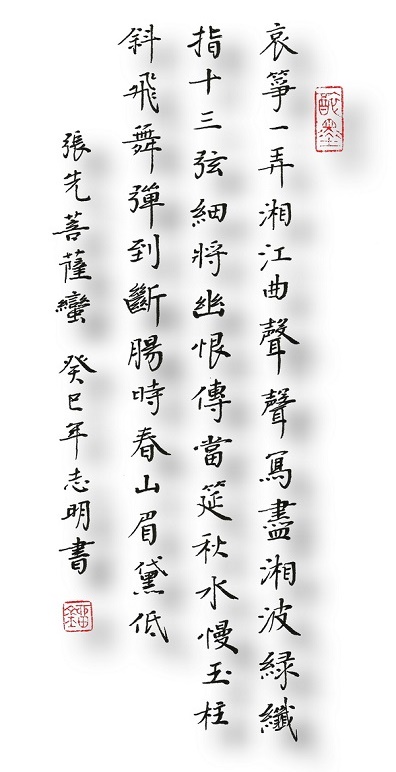 哀箏一弄湘江曲聲聲寫盡湘波緑纖
指十三弦細將幽恨傳當筵秋水慢玉柱
斜飛舞彈到斷腸時春山眉黛低
張先菩薩蠻 癸巳年志明書